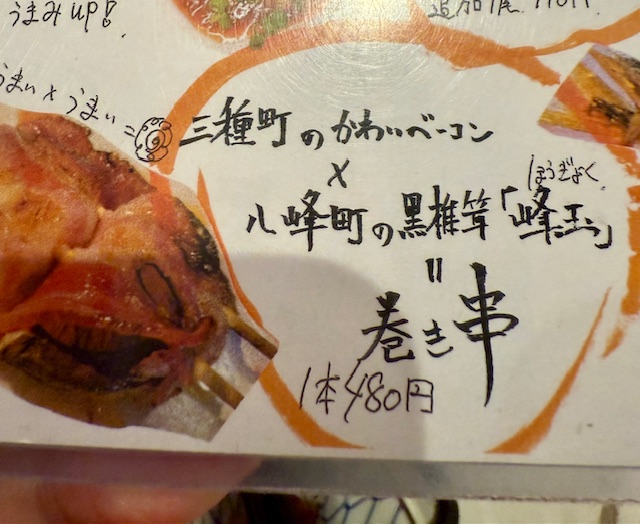 うまみup!
追加1尾 110円
うまい×うまい=
三種町のかわいベーコン
×
ほうぎょく
八峰町の黒椎茸「峰玉」
=
巻き串
1本480円